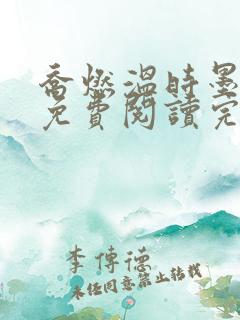 喬燃溫時墨
免費閱讀完
李傳德
未經同意禁止轉載